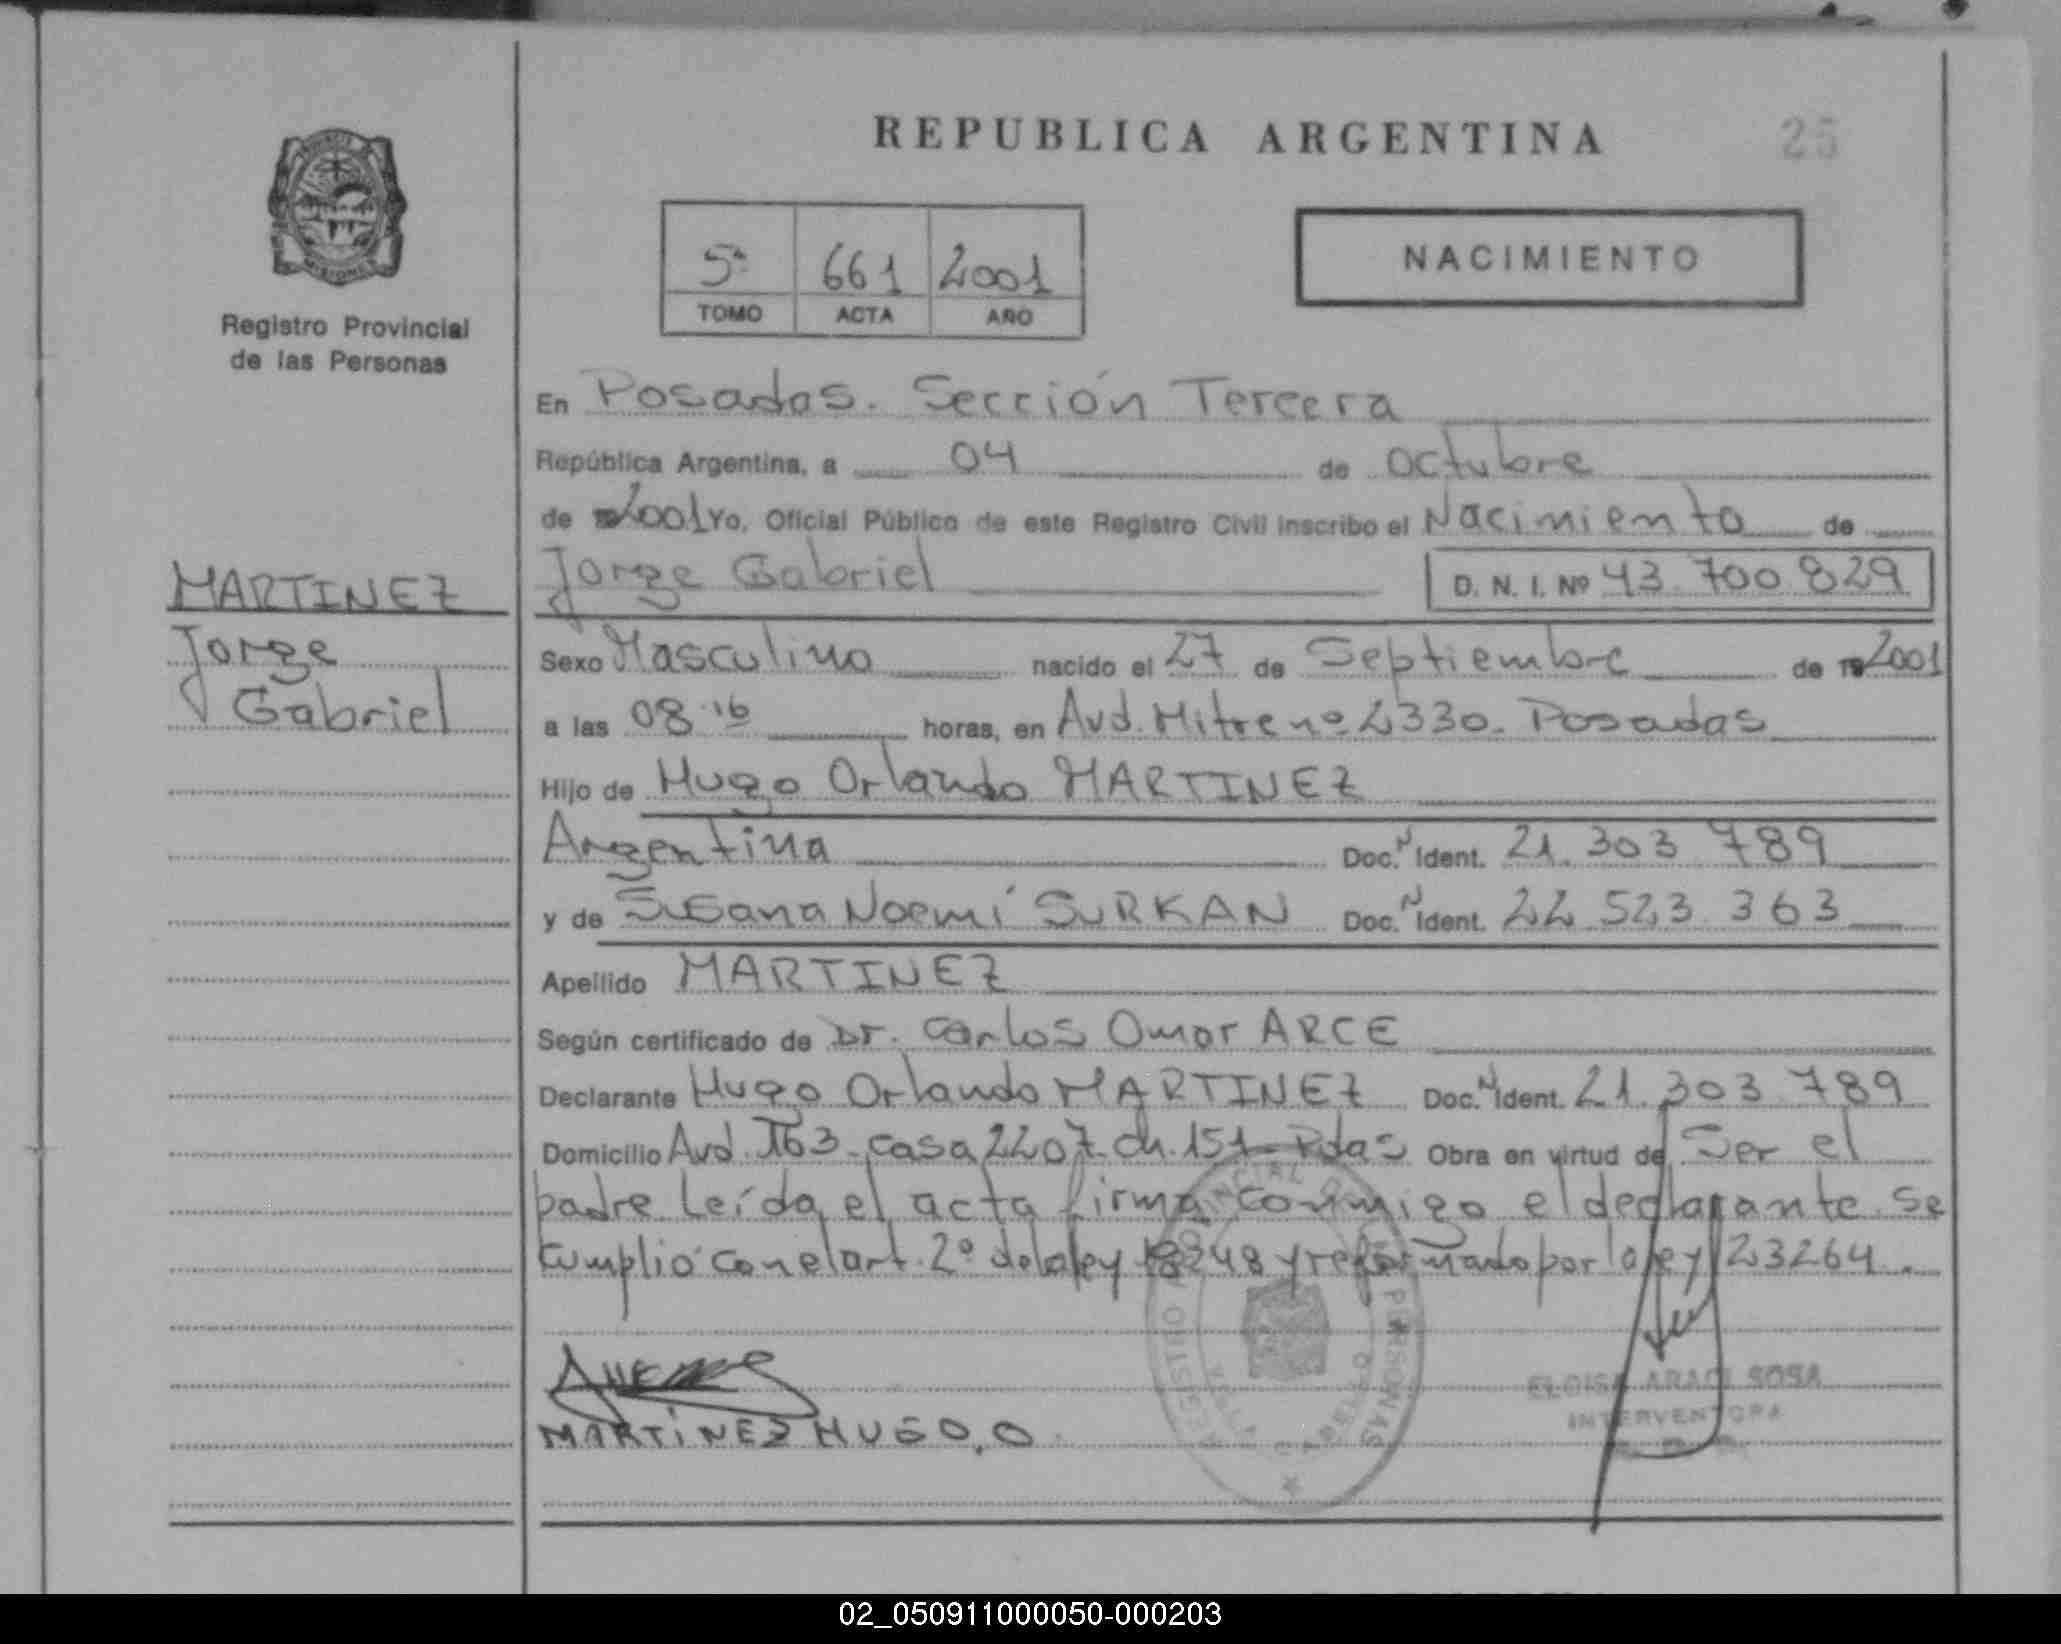 REPUBLICA ARGENTINA
25
Registro Provincial
de las Personas
MISIONES
5ª 661 2001
TOMO ACTA AÑO
NACIMIENTO
MARTINEZ
Jorge
Gabriel
En Posadas. Sección Tercera
República Argentina, a 04 de Octubre
de 2001 Yo, Oficial Público de este Registro Civil inscribo el Nacimiento de
Jorge Gabriel D. N. I. Nº 43.700.829
Sexo Masculino nacido el 27 de Septiembre de 2001
a las 08.16 horas, en Avd. Mitre nº 2330. Posadas
Hijo de Hugo Orlando MARTINEZ
Argentina Doc.N Ident. 21.303.789
y de Susana Noemí SURKAN Doc.N Ident. 22.523.363
Apellido MARTINEZ
Según certificado de Dr. Carlos Omar ARCE
Declarante Hugo Orlando MARTINEZ Doc.N Ident. 21.303.789
Domicilio Avd. 163. casa 2207. ch. 151 - Pdas Obra en virtud de Ser el
padre Leída el acta firma conmigo el declarante. Se
cumplió con el art. 2º de la ley 18248 y reformado por la ley 23264.
MARTiNEZ HUGO.O
REGISTRO PROVINCIAL DE PERSONAS
ELOISA ARACI SOSA
INTERVENTORA
02_050911000050-000203